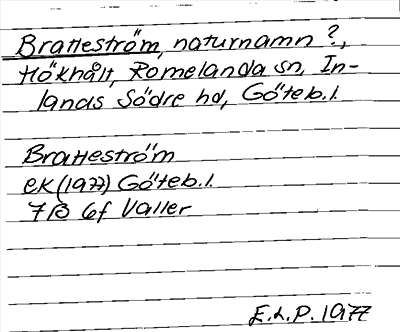 Bratteström, naturnamn?,
Hökhålt, Romelanda sn, In-
lands Södre hd, Göteb.l.
Bratteström
ek (1977) Göteb.l.
7B 6f Valler
E.L.P. 1977